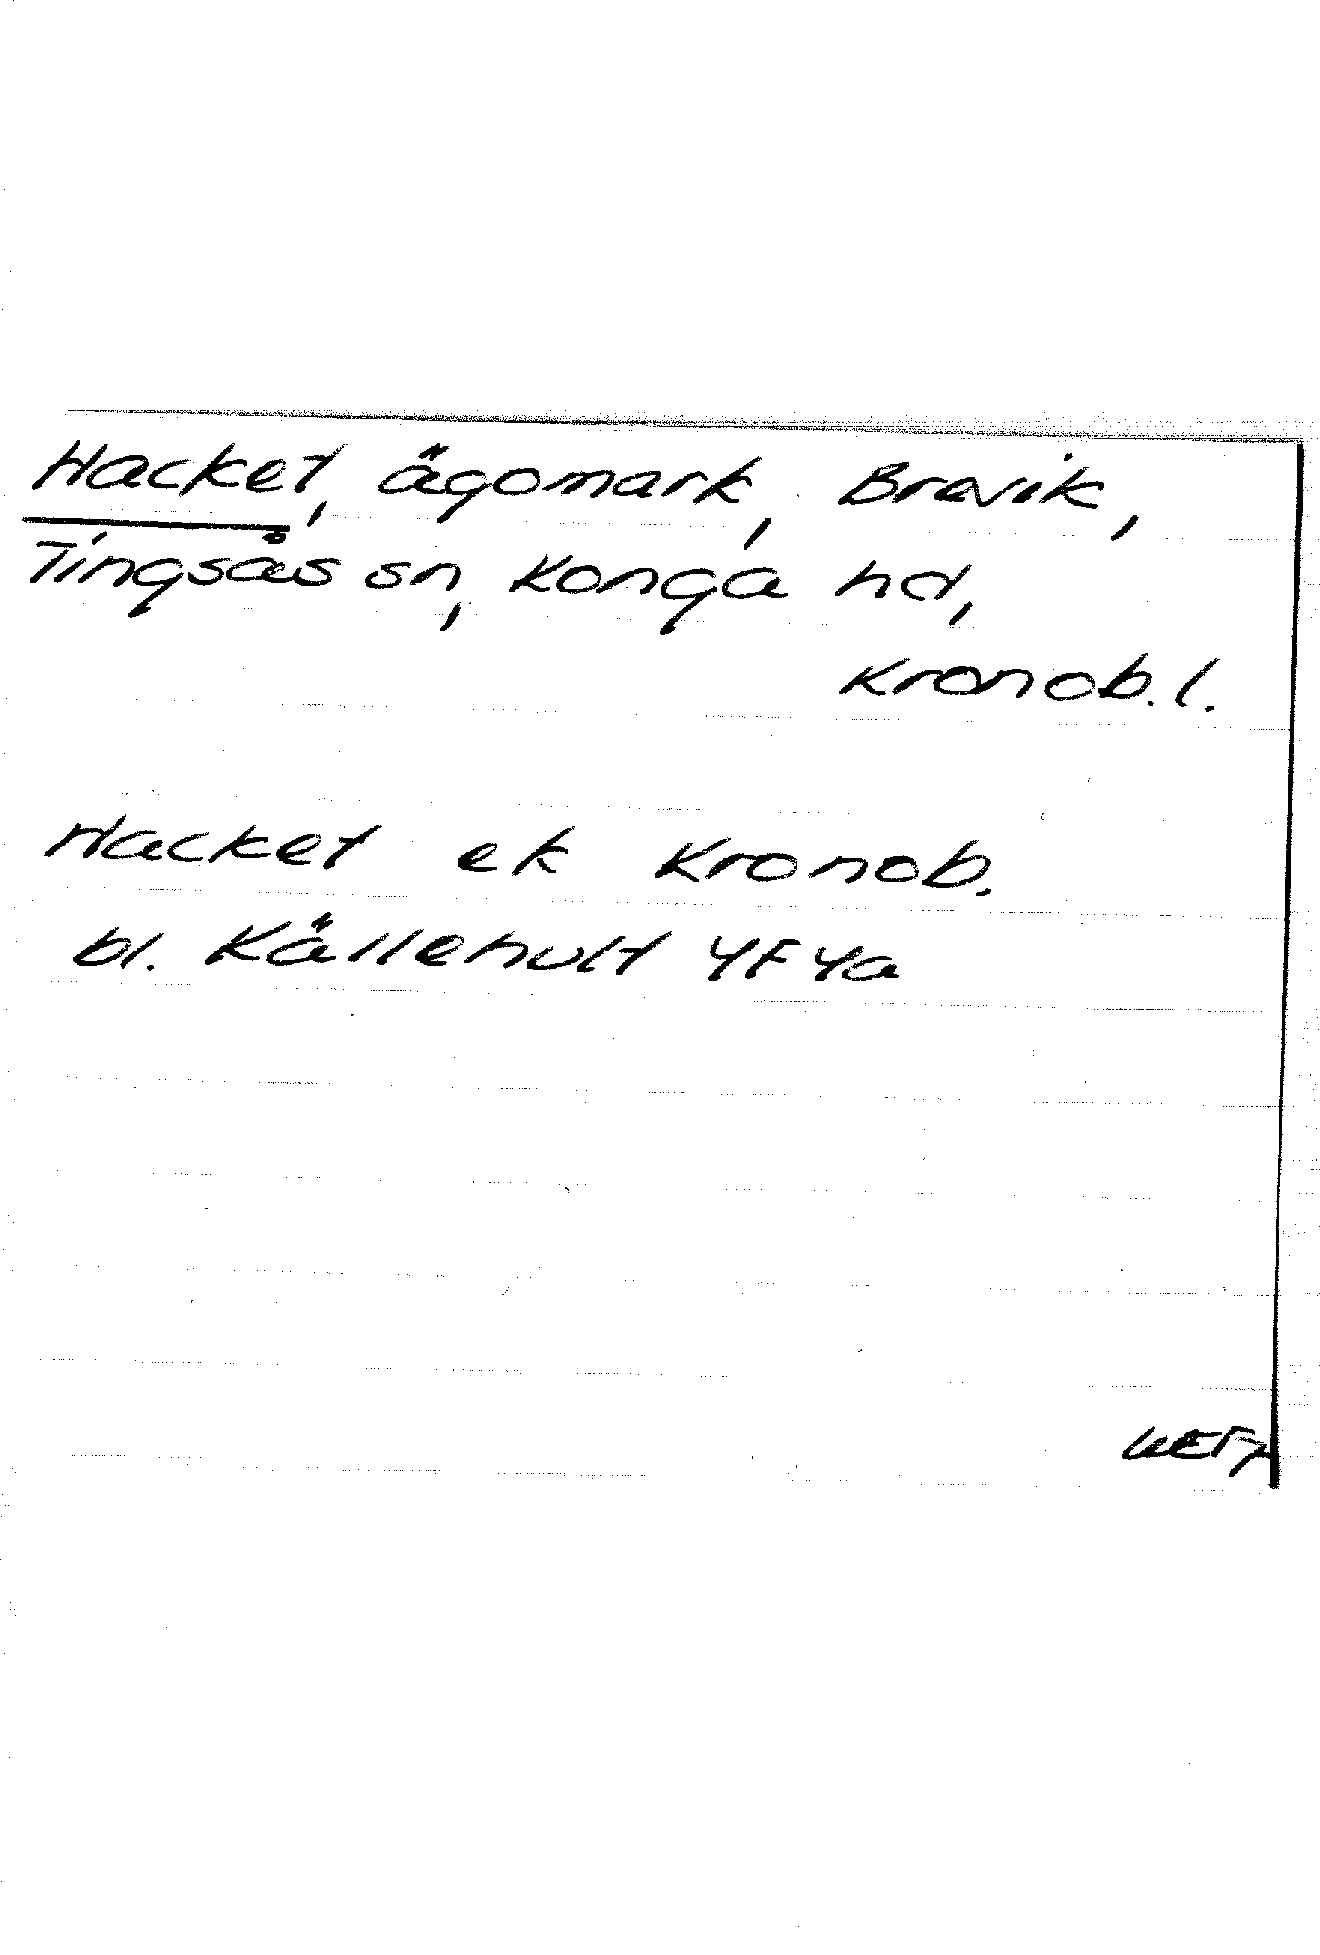 Hacket, ägomark, Brevik,
Tingsås sn, Konga hd,
Kronob. l.
Hacket ek Kronob.
bl. Källehult 4F4a